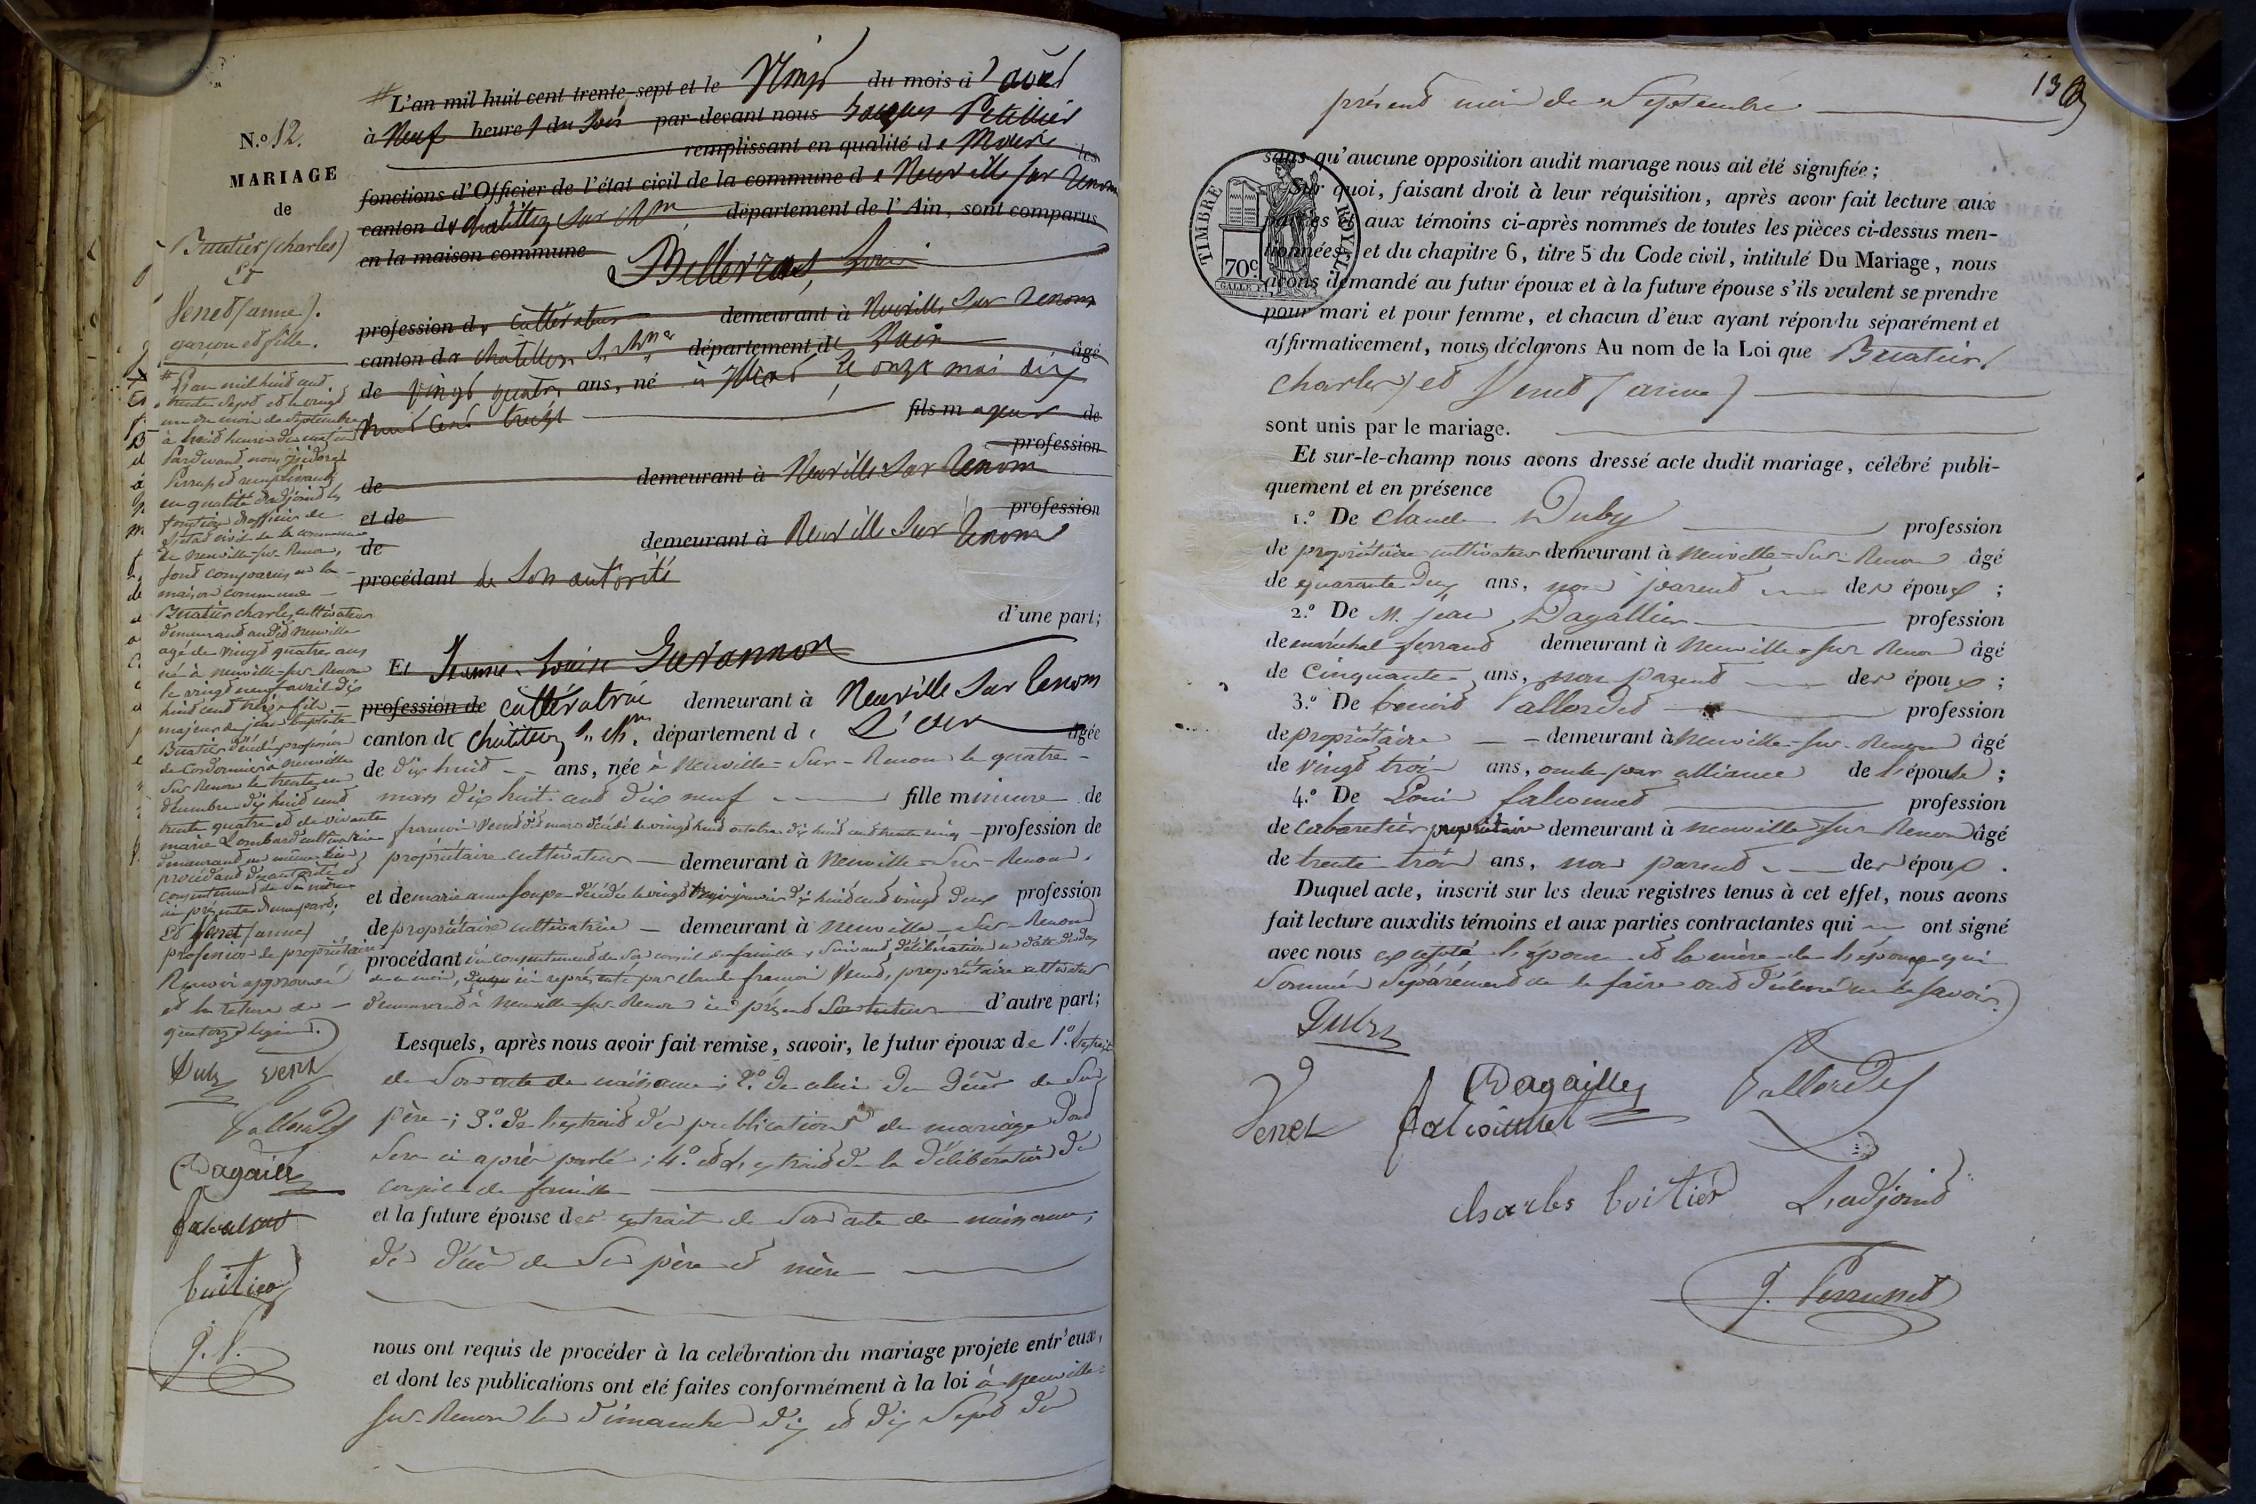 N.º 12.
MARIAGE
de
Buatier (charles)
Et
Venet (anne).
garçon et fille.
# L'an mil huit cent
trente sept et le vingt
un du mois de septembre
à huit heures du matin
Pardevant nous isidore
Perruset remplissant
en qualité d'adjoint les
fonctions d'officier de
l'état civil de la commune
de neuville-sur-Renon,
sont comparus en la
maison commune
Buatier charles, cultivateur
demeurant audit neuville
agé de vingt quatre ans
né à neuville-sur-Renon
le vingt neuf avril dix
huit cent treize fils
majeur de jean baptiste
Buatier décédé profession
de Cordonnier à neuville
sur Renon le trente un
décembre dix huit cent
trente quatre et de vivante
marie Lombard cultivatrice
demeurant au même lieu
procédant d'autorité et
consentement de sa mère
ici présente d'une part;
Et Venet (anne)
profession de propriétaire
Renvoi approuvé
et la rature de
quatorze lignes.
Duby Venet
Vallordet
Dagaille
falconnet
buitier
J. P.
# L'an mil huit cent trente-sept et le Vingt du mois d' avril
à Neuf heures du soir par-devant nous Jacques Petillier
remplissant en qualité de Maire les
fonctions d'Officier de l'état civil de la commune de Neuville sur Renom
canton de Chatillon sur Chne département de l'Ain, sont comparus
en la maison commune
Louis
profession de Cultivateur demeurant à Neuville Sur Renom
canton de Chatillon S. Chne département de L'ain âgé
de Vingt quatre ans, né à le onze mai dix
huit cent treize fils majeur de
profession
de demeurant à Neuville Sur Renom
et de profession
de demeurant à Neuville Sur Renom
procédant de Son autorité
d'une part;
Et Jeanne Louise Guyonnon
profession de cultivatrice demeurant à Neuville Sur Renom
canton de Chatillon S. Ch. département de L'ain âgée
de dix huit ans, née à Neuville-Sur-Renon le quatre
mars dix huit cent dix neuf fille mineure de
francois Venet décédé le vingt huit octobre dix huit cent trente cinq profession de
propriétaire cultivateur demeurant à Neuville-Sur-Renon.
et de marie anne décédée le vingt janvier dix huit cent vingt deux profession
de propriétaire cultivatrice demeurant à neuville-Sur-Renon
procédant du consentement de Son conseil de famille, Suivant délibération en date du dix
de ce mois, ici représenté par Claude francois Venet, propriétaire cultivateur
demeurant à Neuville-sur-Renon ici présent Son tuteur d'autre part;
Lesquels, après nous avoir fait remise, savoir, le futur époux de 1.º l'extrait
de Son acte de naissance; 2.º de celui du décès de Son
père; 3.º de l'extrait des publications de mariage dont
Sera ci après parlé; 4.º et l'extrait de la délibération du
conseil de famille
et la future épouse des extrait de Son acte de naissance,
de décès de Ses père et mère
nous ont requis de procéder à la celébration du mariage projeté entr'eux,
et dont les publications ont été faites conformément à la loi à neuville-
sur-Renon les dimanches dix et dix Sept du
138
présent mois de Septembre
TIMBRE ROYAL
70c.
sans qu'aucune opposition audit mariage nous ait été signifiée;
Sur quoi, faisant droit à leur réquisition, après avoir fait lecture aux
parties et aux témoins ci-après nommés de toutes les pièces ci-dessus men-
tionnées, et du chapitre 6, titre 5 du Code civil, intitulé Du Mariage, nous
avons demandé au futur époux et à la future épouse s'ils veulent se prendre
pour mari et pour femme, et chacun d'eux ayant répondu séparément et
affirmativement, nous déclarons Au nom de la Loi que Buatier (
charles) et Venet (anne)
sont unis par le mariage.
Et sur-le-champ nous avons dressé acte dudit mariage, célébré publi-
quement et en présence
1.º De Claude Duby profession
de propriétaire cultivateur demeurant à Neuville-Sur-Renon âgé
de quarante deux ans, non parent des époux;
2.º De M. jean Dagallier profession
de maréchal-ferrant demeurant à Neuville-sur Renon âgé
de Cinquante ans, non parent des époux;
3.º De benoit Vallordet profession
de propriétaire demeurant à Neuville-sur-Renon âgé
de vingt trois ans, oncle par alliance de l'épouse;
4.º De Louis falconnet profession
de cabaretier propriétaire demeurant à neuville sur-Renon âgé
de trente trois ans, non parent des époux.
Duquel acte, inscrit sur les deux registres tenus à cet effet, nous avons
fait lecture auxdits témoins et aux parties contractantes qui ont signé
avec nous excepté l'épouse et la mère de l'époux qui
Sommées Séparément de le faire ont déclaré ne le Savoir.
Duby
Venet Dagailley Vallordet
falconnet
charles buitier L'adjoint
J. Perruset